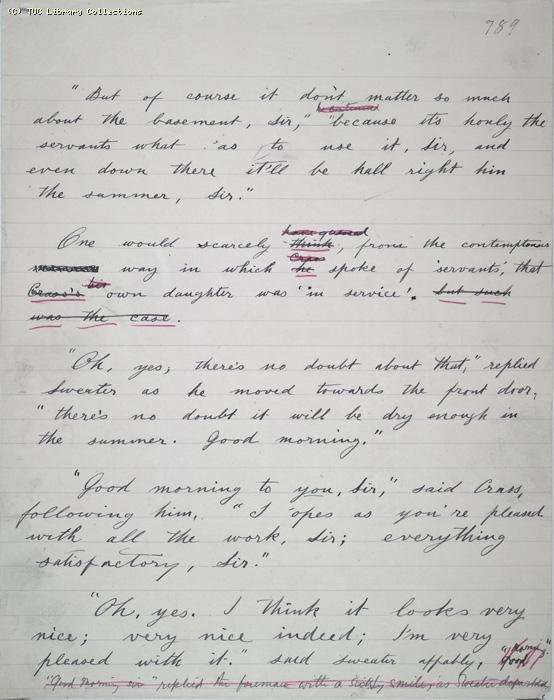 (C) TUC Library Collections
789
"But of course it don't matter so much
he continued
about the basement, Sir," "because its honly the
servants what 'as to use it, Sir, and
even down there it'll be hall right hin
the summer, Sir."
have guessed
One would scarcely think, from the contemptuous
Crass
manner way in which he spoke of servants, that
his
Crass's own daughter was 'in service'. but such
was the case.
"Oh, yes; there's no doubt about that," replied
Sweater as he moved towards the front door,
"there's no doubt it will be dry enough in
the summer. Good morning."
"Good morning to you, Sir," said Crass,
following him, "I 'opes as you're pleased
with all the work, Sir; everything
satisfactory, Sir."
"Oh, yes. I think it looks very
nice; very nice indeed; I'm very
pleased with it." said Sweater affably, "Good morning."
"Good Morning sir" replied the foreman with a sickly smile, as Sweater departed